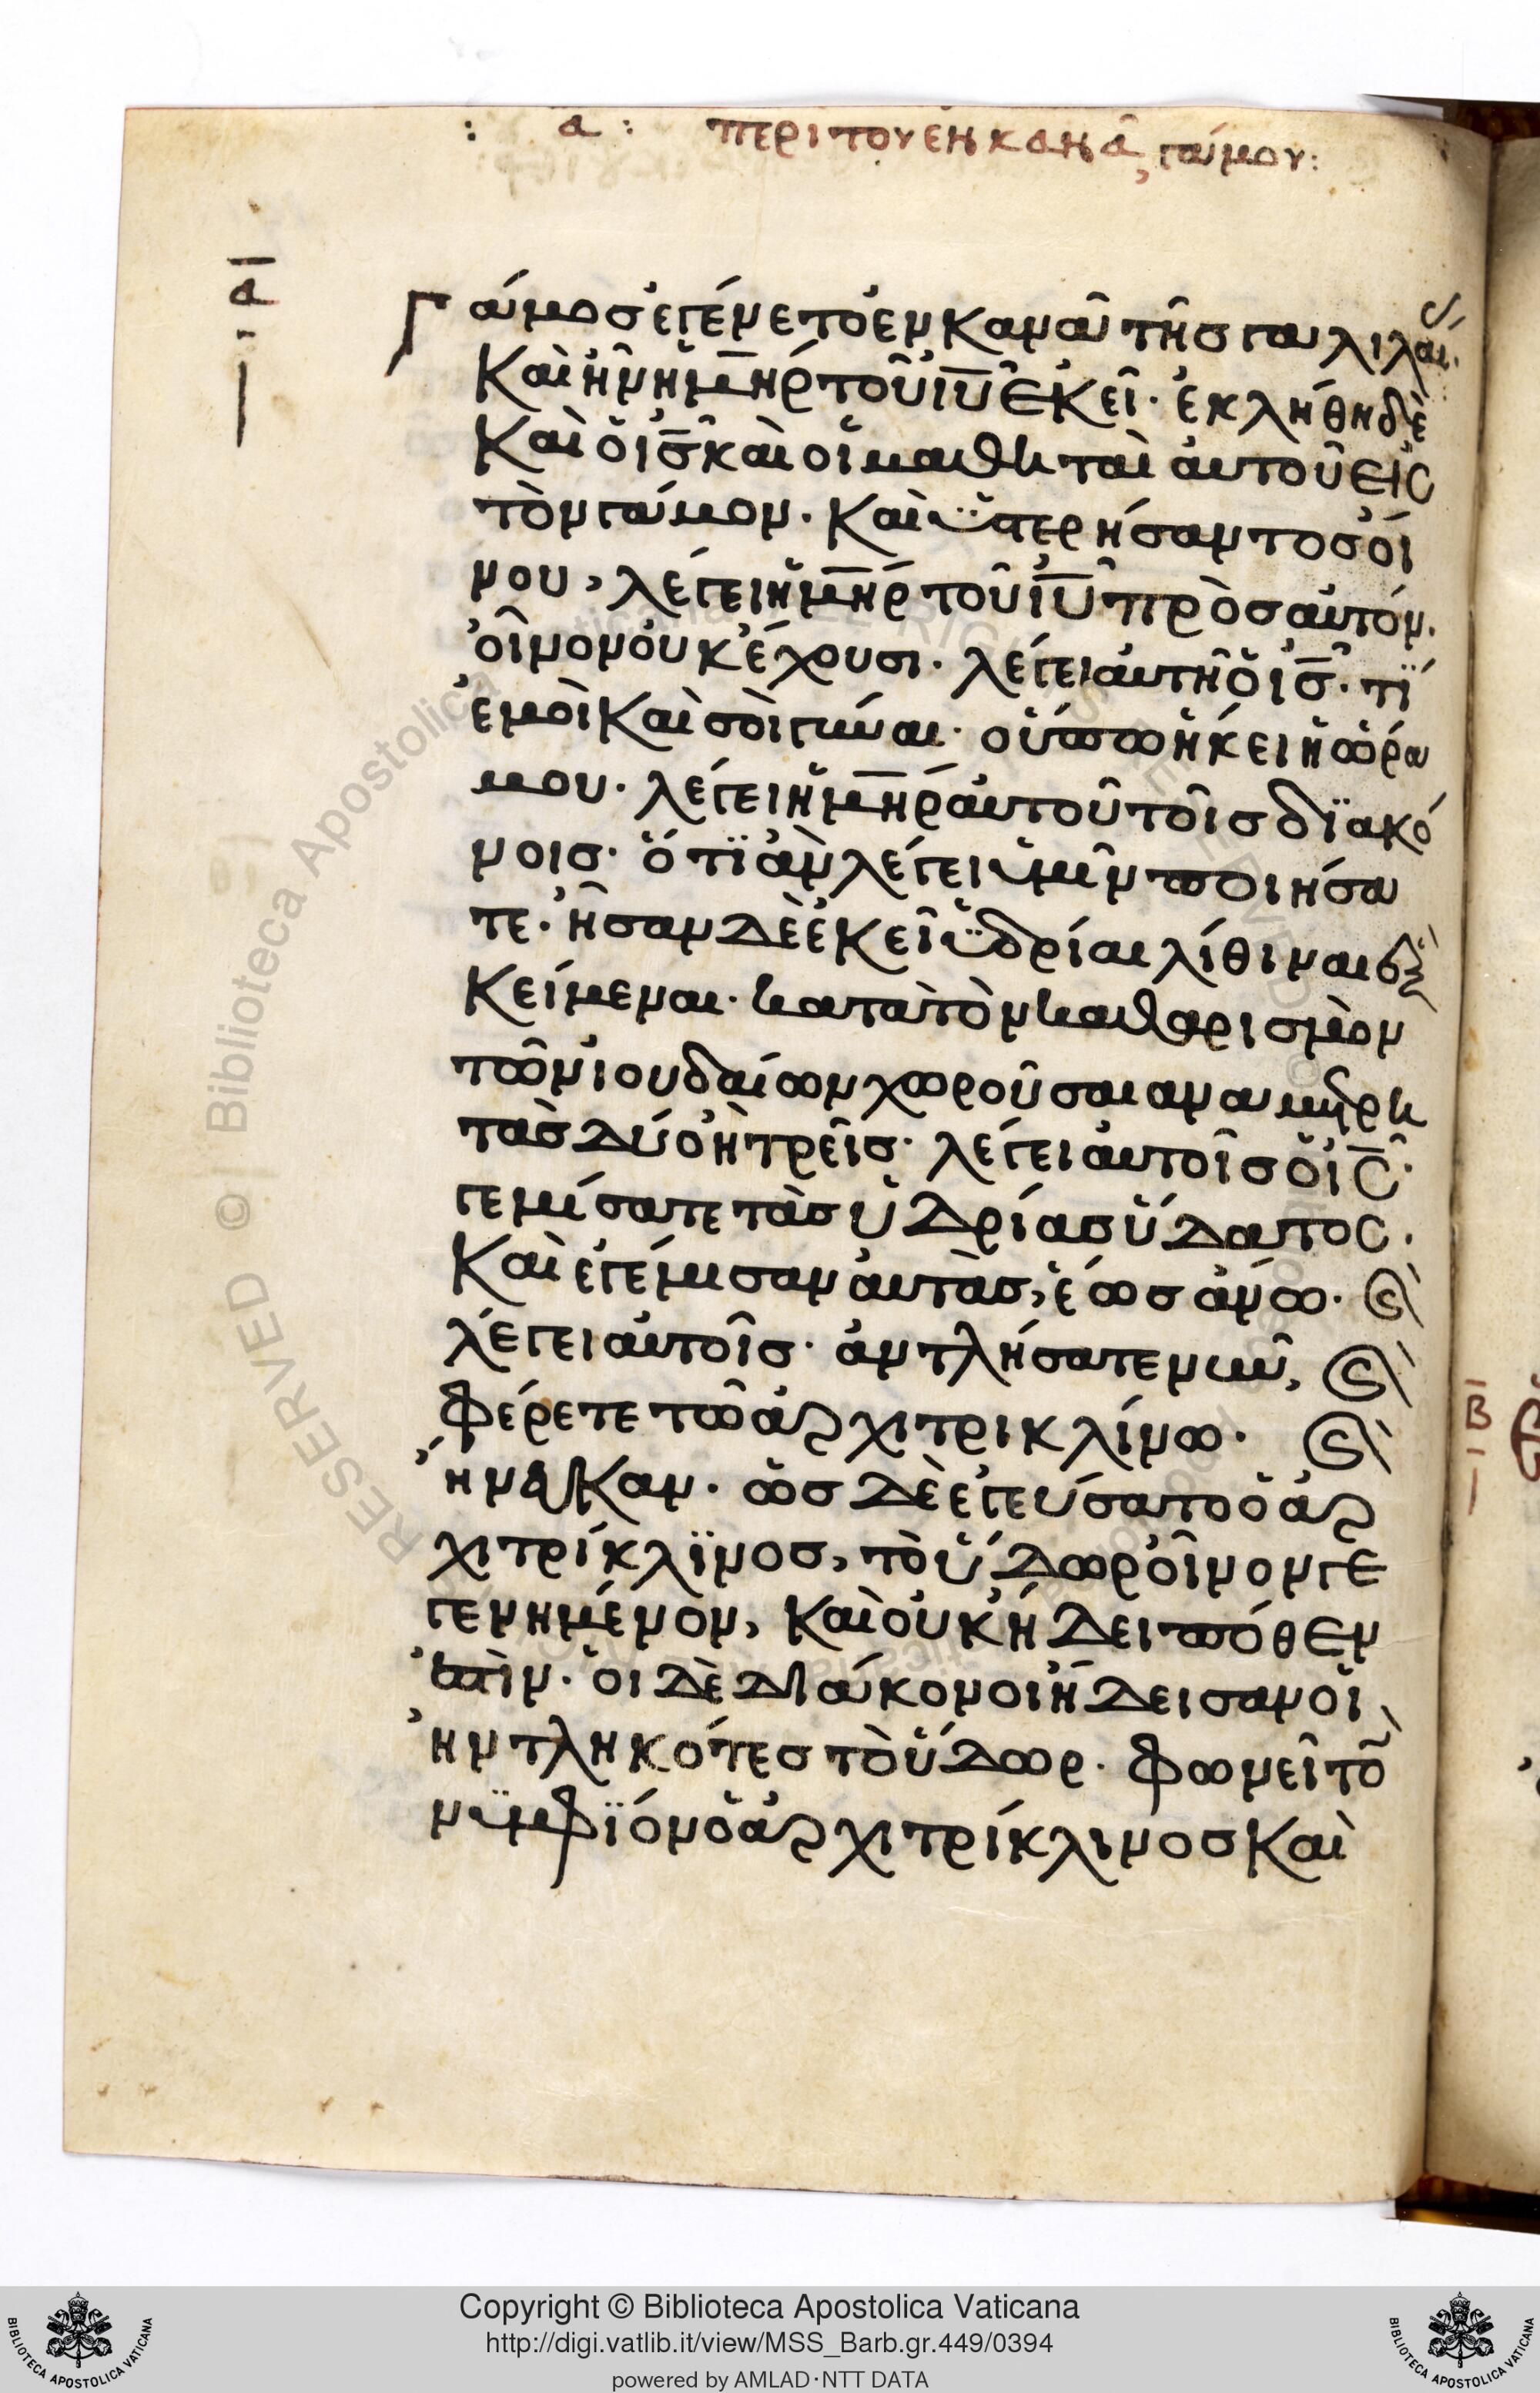 : α : περι του εν κανᾶ, γάμου:
ᾱ
Γάμος ἐγένετο ἐν Κανᾶ τῆς γαλιλαί
Καὶ ἦν ἡ μ̅η̅ρ̅ τοῦ ι̅υ̅ ἐκεῖ· ἐκλήθη δὲ
Καὶ ὁ ι̅ς̅ καὶ οἱ μαθηταὶ αὐτοῦ εἰς
τὸν γάμον. Καὶ ὑστερήσαντος οἴ
νου, λέγει ἡ μ̅η̅ρ̅ τοῦ ι̅υ̅ πρὸς αὐτόν.
οἶνον οὐκ ἔχουσι. λέγει αὐτῆ ὁ ι̅ς̅· τϊ
ἐμοὶ Καὶ σοὶ γύναι· οὔπω ἥκει ἡ ὥρα
μου. λέγει ἡ μ̅η̅ρ̅ αὐτοῦ τοῖς δϊακό
νοις· ὅ τϊ ἂν λέγει ὑμῖν ποιήσα
τε· ἦσαν δὲ ἐκεῖ ὑδρίαι λίθιναι ἓξ
Κείμεναι· κατὰ τὸν καθαρισμὸν
τῶν ἰουδαίων χωροῦσαι ανα μετρη
τὰς δύο ἢ τρεῖς· λέγει αὐτοῖς ὁ ι̅ς̅·
γεμίσατε τὰς ὑδρίας ὕδατος.
Καὶ ἐγέμισαν αὐτὰς, ἕως ἄνω. Καὶ
λέγει αὐτοῖς· ἀντλήσατε νῦν, Καὶ
φέρετε τῶ ἀρχιτρικλίνω. Καὶ
ἤνεγκαν. ὡς δὲ ἐγεύσατο ὁ ἀρ
χιτρίκλϊνος, τὸ ὕδωρ οἶνον γε
γενημένον, Καὶ οὐκ ἤδει πόθεν
ἐστὶν. οἱ δὲ διάκονοι ἤδεισαν οἱ
ἠντληκότες τὸ ὕδωρ. φωνεῖ τὸ
νϋμφϊόν ὁ ἀρχιτρίκλινος Καὶ
Β
RESERVED © | Biblioteca Apostolica Vaticana
Copyright © Biblioteca Apostolica Vaticana
http://digi.vatlib.it/view/MSS_Barb.gr.449/0394
powered by AMLAD·NTT DATA
BIBLIOTECA APOSTOLICA VATICANA
BIBLIOTECA APOSTOLICA VATICANA